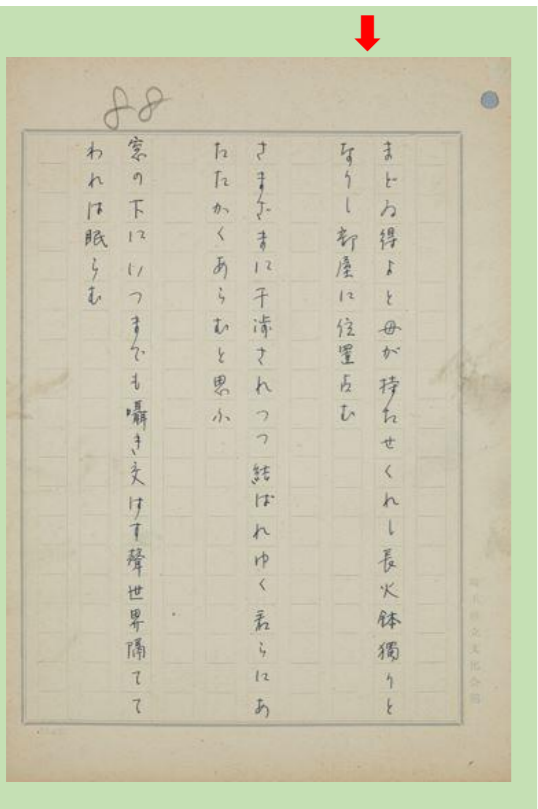 88
まどゐ得よと母が持たせくれし長火鉢獨りと
なりし部屋に位置占む
さまざまに干渉されつつ結ばれゆく君らにあ
たたかくあらむと思ふ
窓の下にいつまでも囁き交はす聲世界隔てて
われは眠らむ